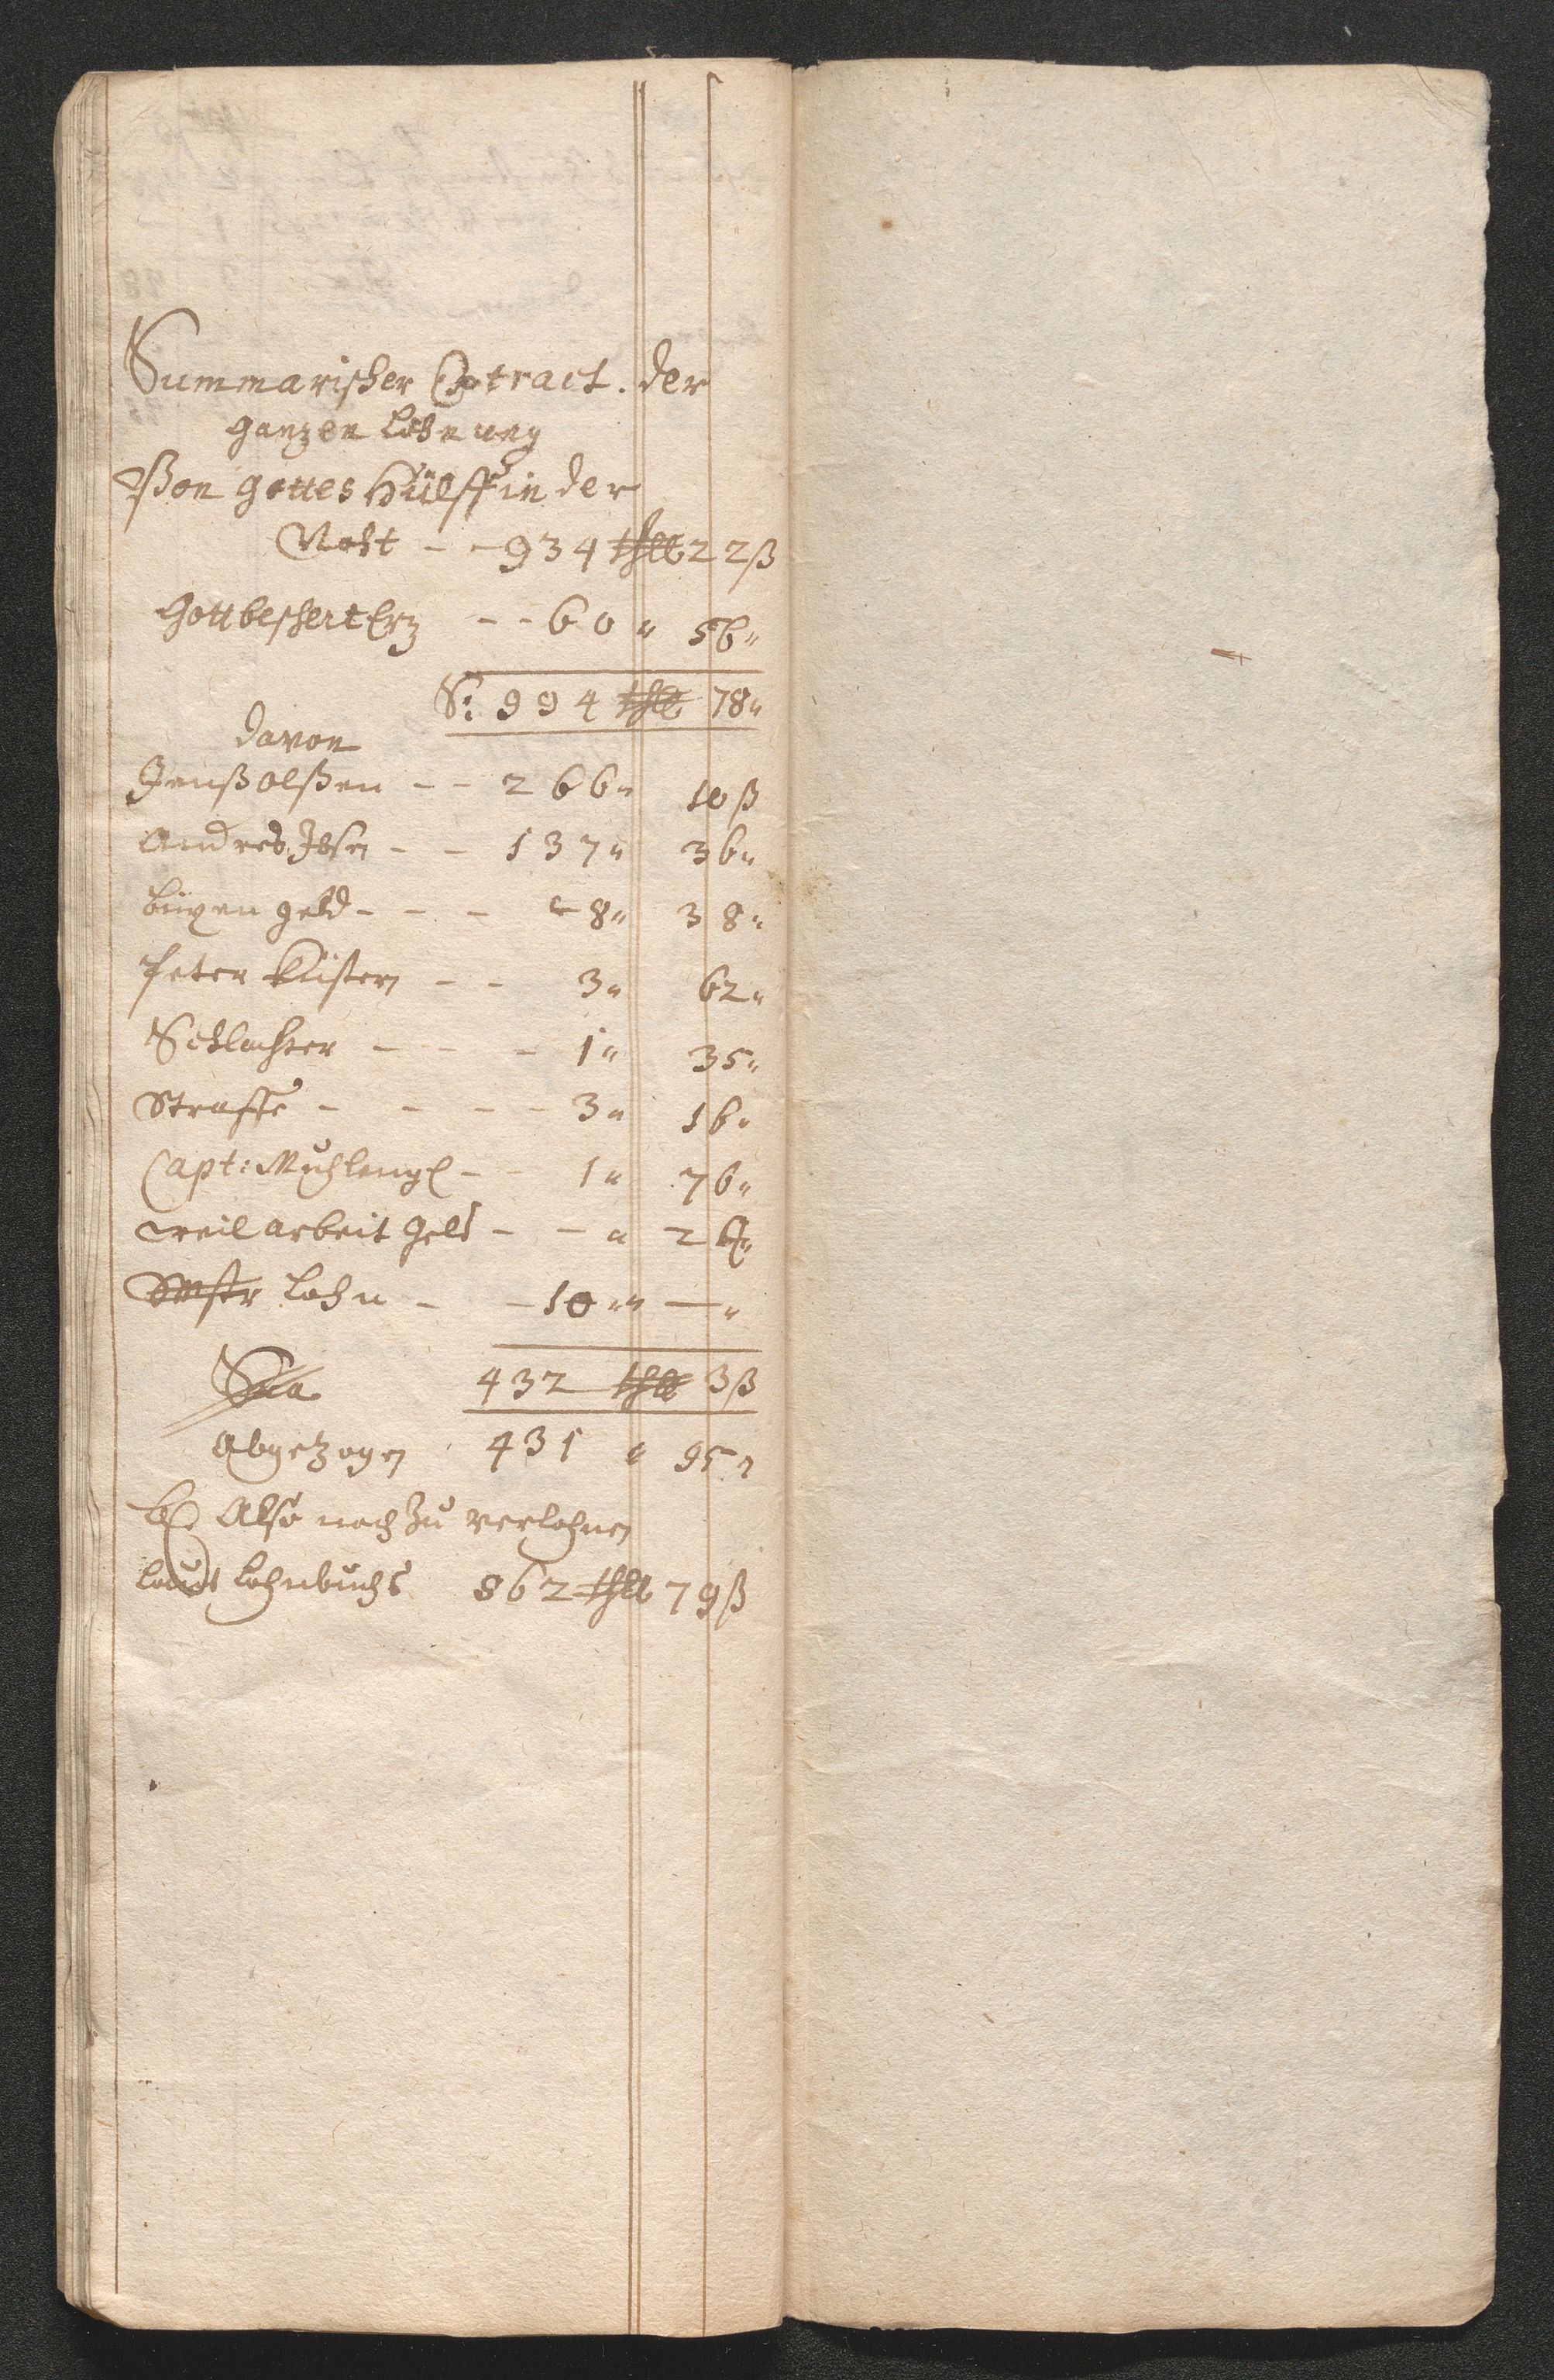 Summarischer Extract. der
gantzen Lohnung
Von Gottes Hülff in der
Noht - - 934 thlr 22 ß
Gott beschert Ertz - - 60 " 56 "
S: 994 thlr 78 "
davon
Jenß Olßen - - 266 " 10 ß
Andres Ibsen - - 137 " 36 "
büxen geld - - - 8 " 38 "
Peter Küstern - - 3 " 62 "
Schlachter - - - 1 " 35 "
Straffe - - - - 3 " 16 "
Capt: Muhlengl - - 1 " 76 "
weil arbeit Geld - - " 2
Mstr Lohn - - 10 " — "
Sua 432 thlr 3 ß
Abgezogen 431 " 95 "
Also noch Zu verlohnen
laut Lohnbuchs 562 thlr 79 ß